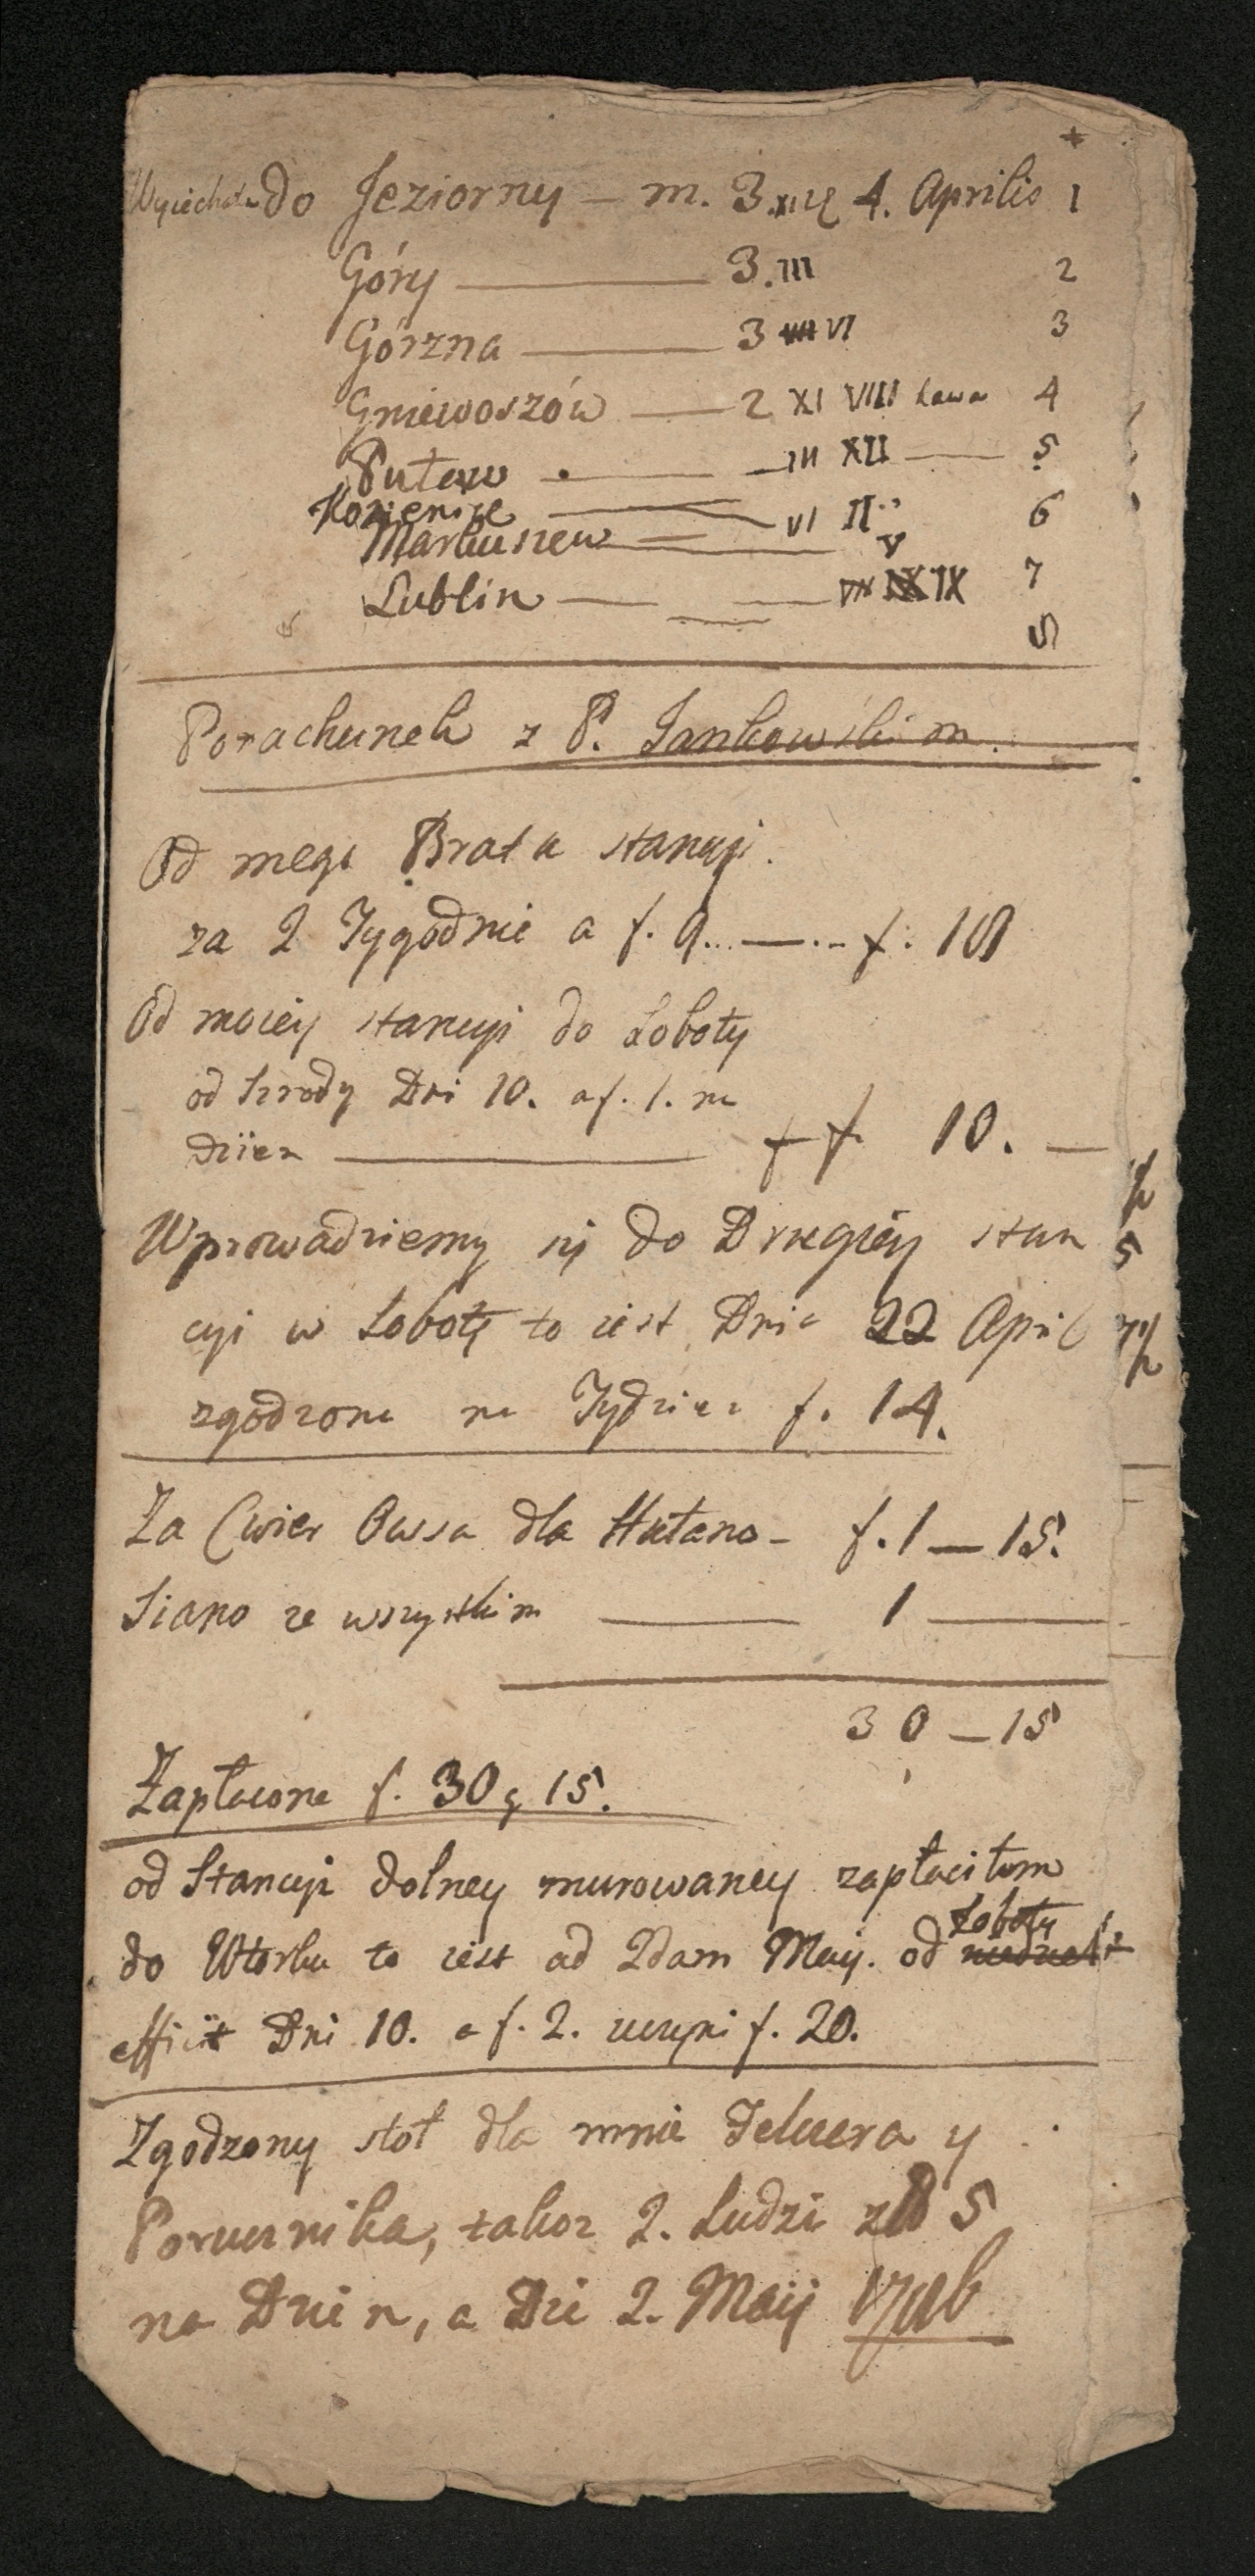 +
do Jeziorny – m. 3. 4. Aprilis 1
Góry — 3. III 2
Górzna — 3 VI 3
Gniewoszów — 2 XI VIII kawa 4
Puław — III XII — 5
Kozienice — VI II 6
Markuszew — V
Lublin — IX 7
Porachunek z P. Jankowskim.
Od mego Brata stancyi.
za 2 Tygodnie a f. 9. — f. 18
Od moiey stancyi do Soboty
od Srzody Dni 10. a f. 1. na
dzień — f 10. —
Wprowadziemy się do Drugiey stan
cyi w Sobotę to iest Dnia 22 April
zgodzona na Tydzień f. 14.
Za Cwier Owsa dla Hułana – f. 1 — 15.
Siano ze wszystkim — 1 —
30 – 15
Zapłacone f. 30 g 15.
od Stancyi dolney murowaney zapłaciłem
Soboty
do Wtorku to iest ad 2dam Maij. od niedzieli
efficit Dni 10. a f. 2. f. 20.
Zgodzony stół dla mnie Felczera y
Porucznika, takoż 2. Ludzi 5
na Dzień, a Die 2. Maij